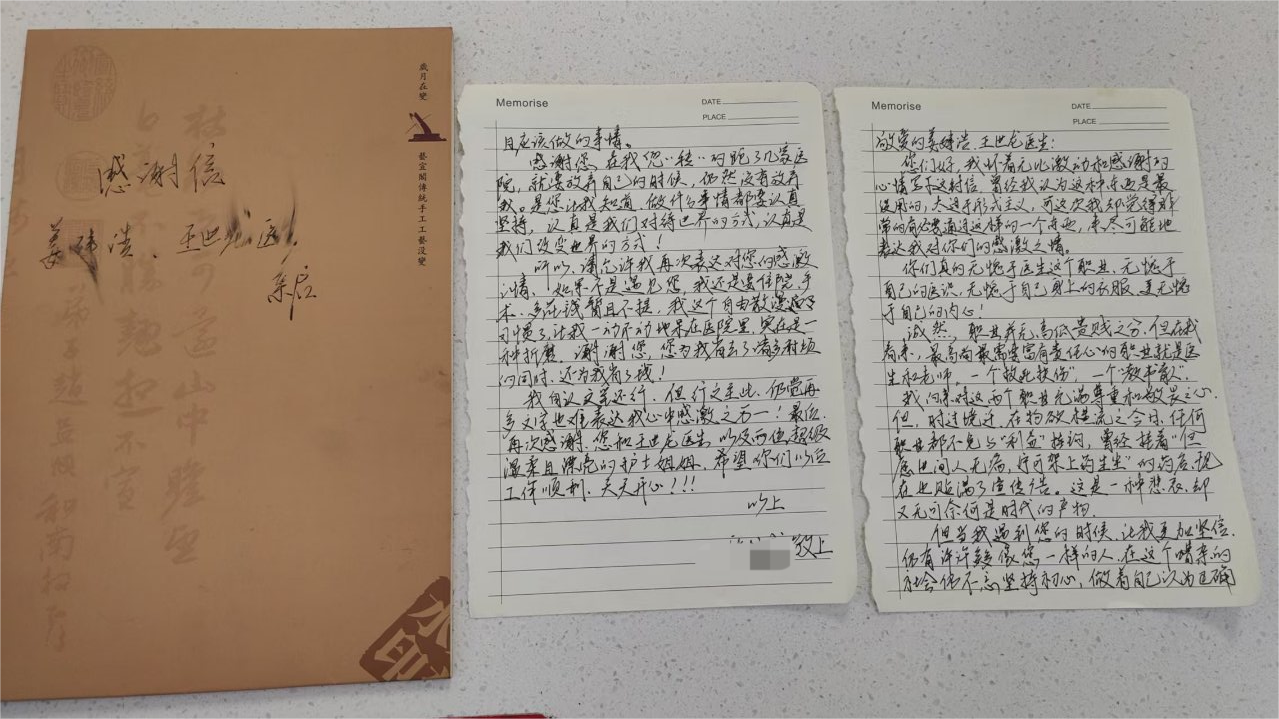 歲月在變
藝宣閣傳統手工工藝沒變
感谢信
姜 浩、王世龙医
亲启
Memorise
DATE
PLACE
敬爱的姜 浩、王世龙医生:
你们好,我怀着无比激动和感谢的
心情写下这封信。曾经我认为这种东西是最
没用的,太过于形式主义,可这次我却觉得非
常的有必要通过这样的一个东西,来尽可能地
表达我对你们的感激之情。
你们真的无愧于医生这个职业,无愧于
自己的医识,无愧于自己身上的衣服,更无愧
于自己的内心!
诚然,职业并无高低贵贱之分,但在我
看来,最高尚最需要富有责任心的职业就是医
生和老师。一个“救死扶伤”,一个“教书育人”。
我向来对这两个职业充满尊重和敬畏之心。
但,时过境迁,在物欲横流之今日,任何
职业都不免与“利益”挂钩,曾经挂着“但
愿世间人无病,宁可架上药生尘”的药店,现
在也贴满了宣传广告。这是一种悲哀,却
又无可奈何是时代的产物。
但当我遇到您的时候,让我更加坚信,
仍有许许多多像您一样的人,在这个嘈杂的
社会仍不忘坚持初心,做着自己认为正确
Memorise
DATE
PLACE
且应该做的事情。
感谢您,在我“辗转”的跑了几家医
院,就要放弃自己的时候,仍然没有放弃
我。是您让我知道,做什么事情都要认真
坚持,认真是我们对待世界的方式,认真是
我们改变世界的方式!
所以,请允许我再次表达对您的感激
之情,如果不是遇见您,我还是要住院,手
术,多花钱暂且不提,我这个自由散漫的
习惯了,让我一动不动地呆在医院里,实在是一
种折磨。谢谢您,您为我省去了诸多麻烦
的同时,还为我省了钱!
我自认文采还行,但行文至此,仍觉再
多文字也难表达我心中感激之万一!最后,
再次感谢您和王世龙医生,以及两位超级
温柔且漂亮的护士姐姐,希望你们以后
工作顺利,天天开心!!!
以上
敬上